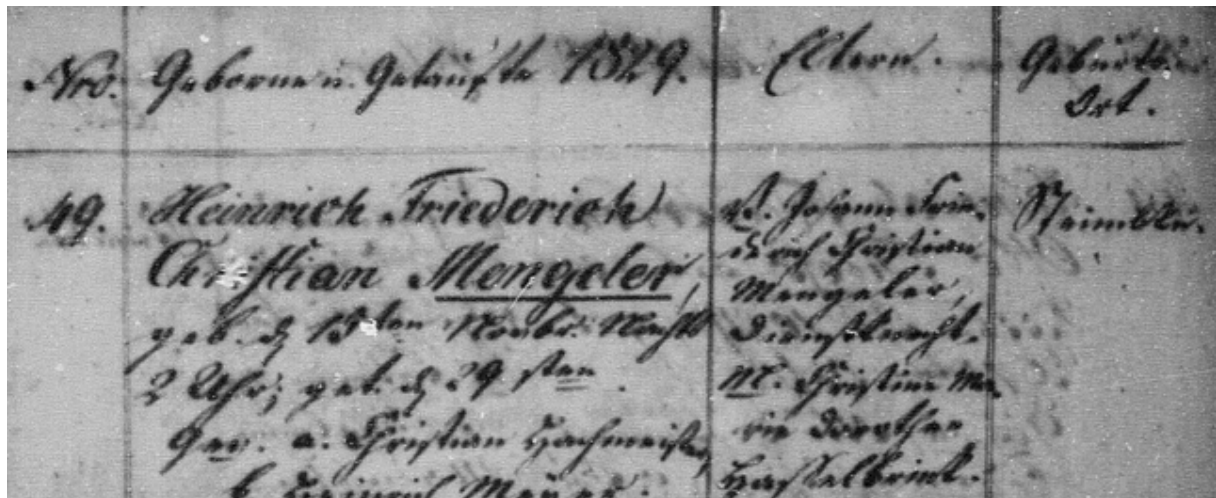 Nro.
Geborne u. Getaufte 1829.
Eltern.
Geburts-
Ort.
49.
Heinrich Friederich
Christian Mengeler,
geb. d. 15ten Novbr. Nachts
2 Uhr; get. d. 29sten
Gev. a. Christian Hachmeister,
b. Heinrich Meyer.
V. Johann Frie-
derich Christian
Mengeler,
Dienstknecht.
M. Christine Ma-
rie Dorothee
Hasselbrink.